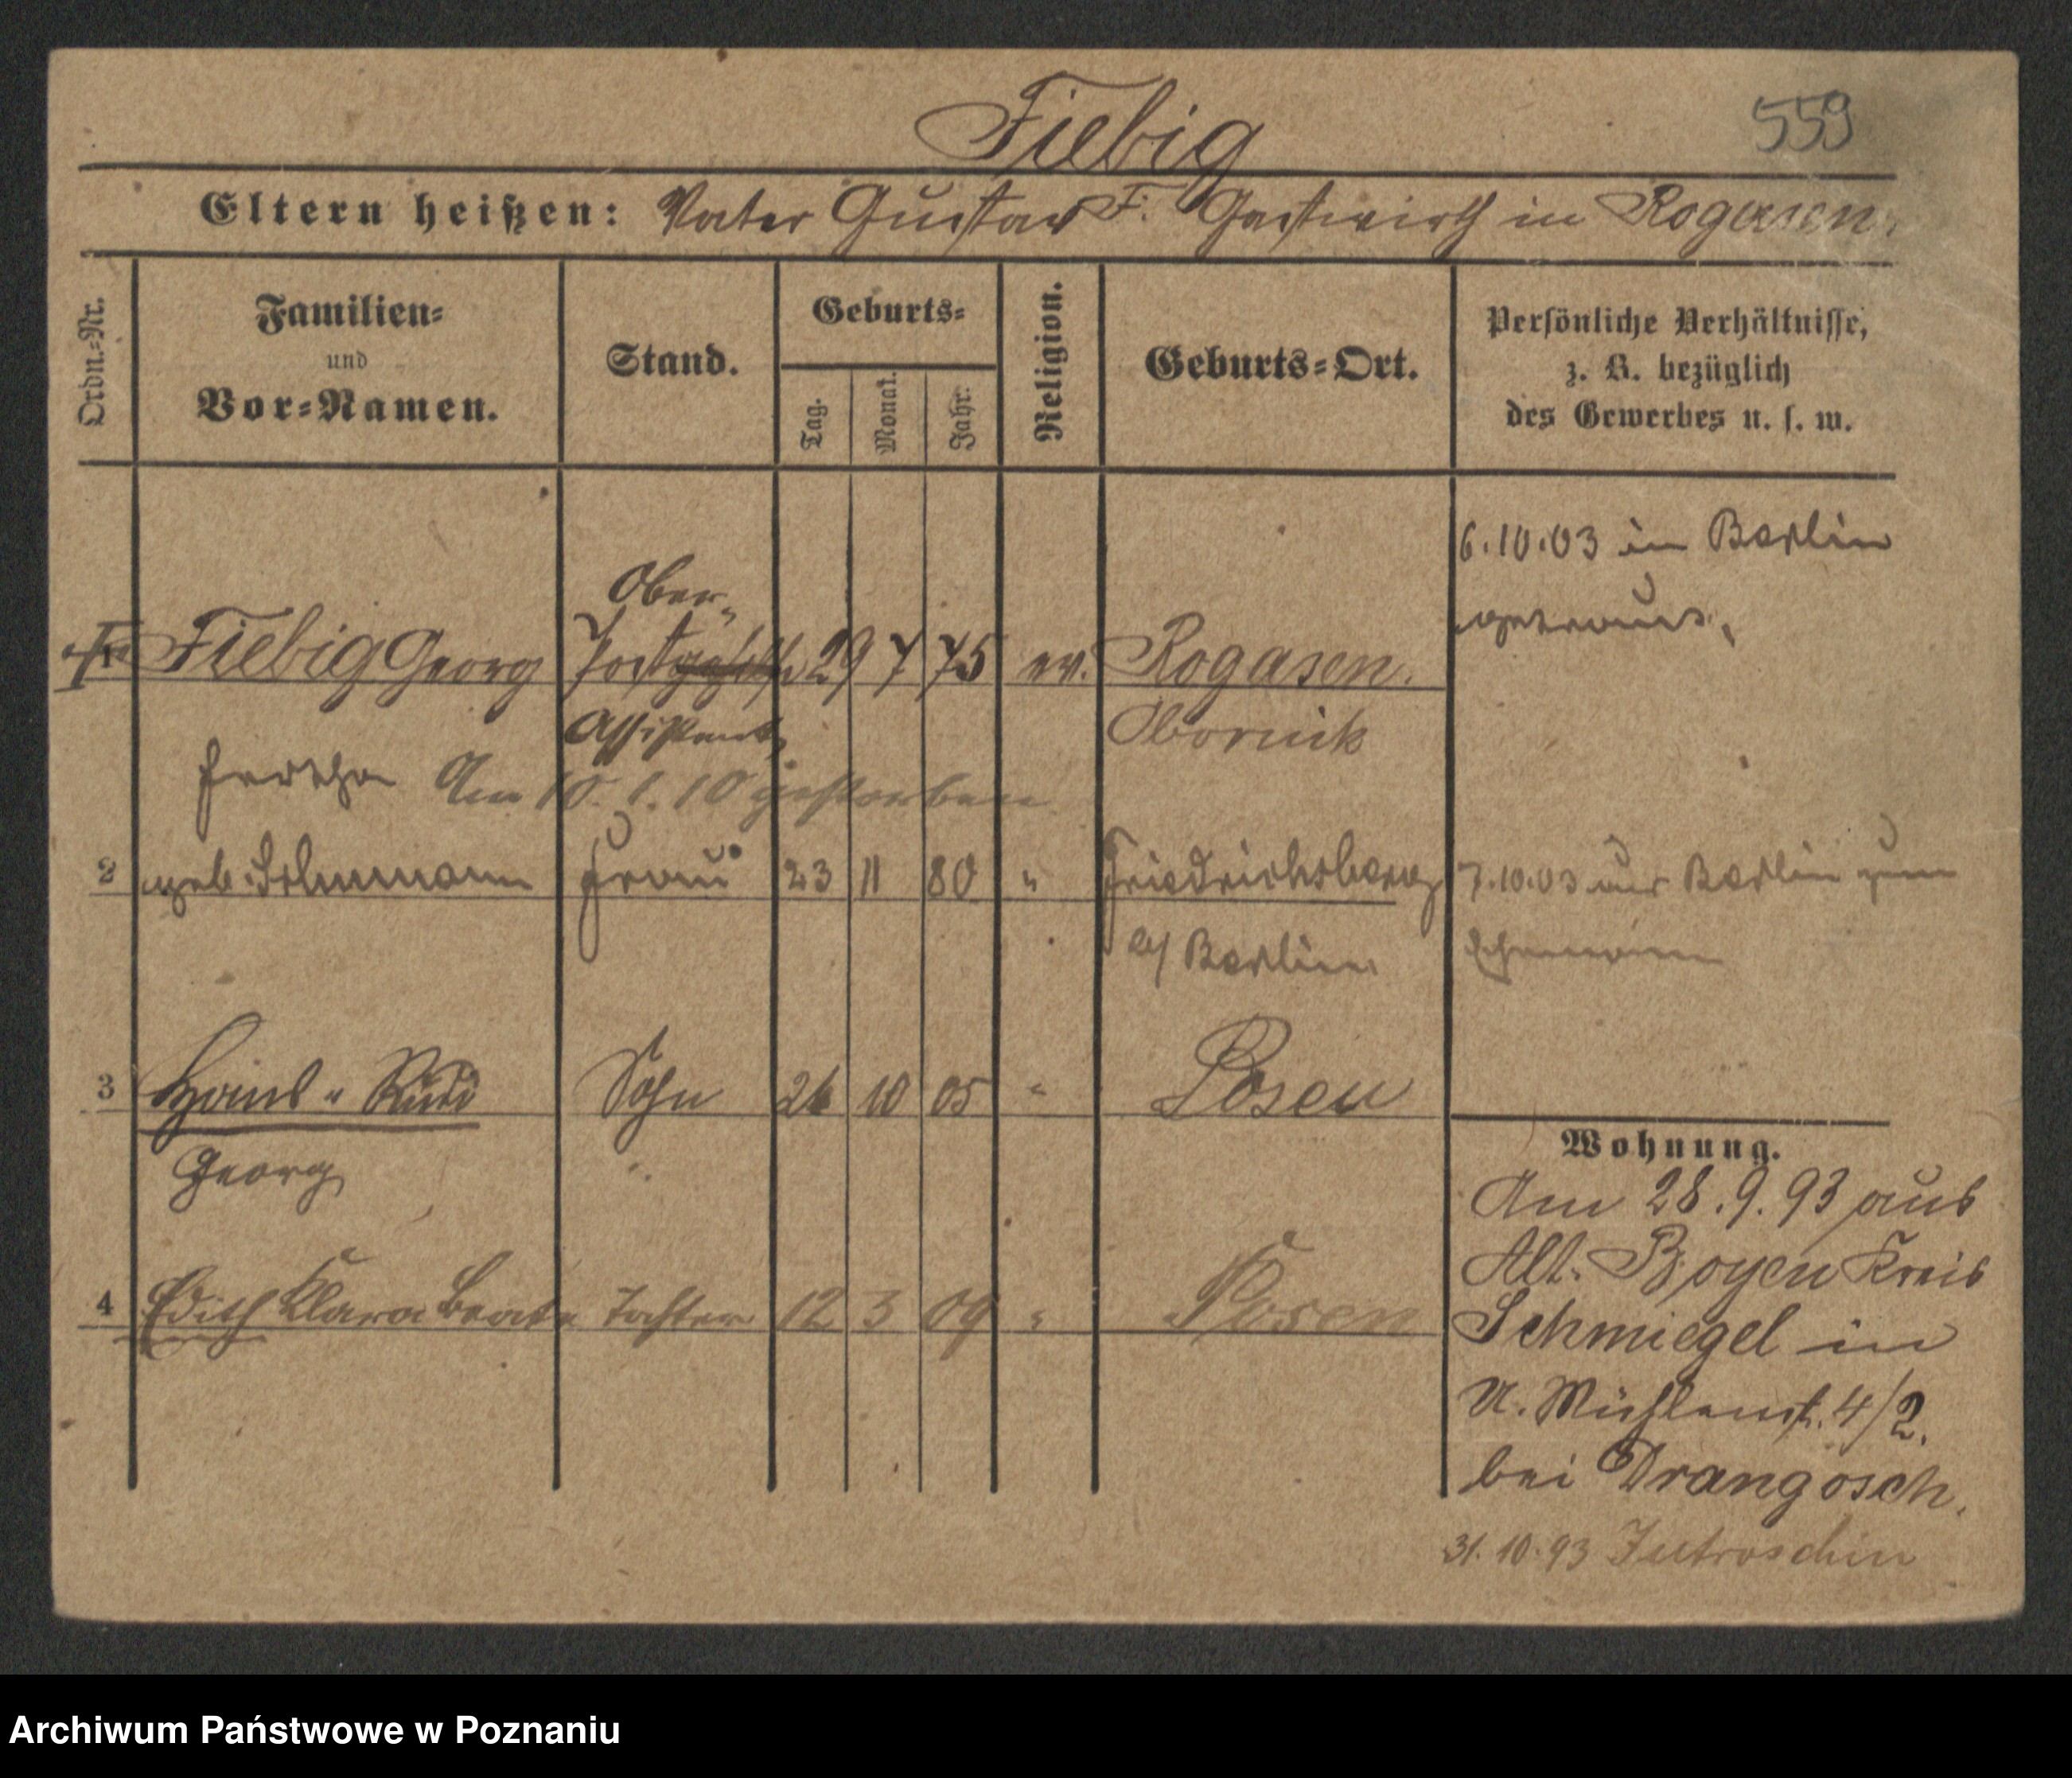 Fiebig
559
Eltern heißen: Vater Gustav F. Gastwirth in Rogasen.
Ordn.-Nr.
Familien-
und
Vor-Namen.
Stand.
Geburts-
Tag.
Monat.
Jahr.
Religion.
Geburts-Ort.
Persönliche Verhältnisse,
z. B. bezüglich
des Gewerbes u. s. w.
6.10.03 in Berlin
getraut.
Ober-
1 Fiebig Georg Postgehilfe 29 7 75 ev. Rogasen.
Assistent Obornik
Am 10. 1. 10 gestorben
2 geb. Schumann Frau 23 11 80 " Friedrichsberg 7.10.03 aus Berlin zum
b/ Berlin Ehemann
3 Hans " Rudi Sohn 26 10 05 " Posen
Georg
4 Edith Klara Beate Tochter 12 3 09 " Posen
Wohnung.
Am 28.9.93 aus
Alt-Boyen Kreis
Schmiegel in
U. Mühlenst. 4/2.
bei Drangosch.
31.10.93 Jutroschin
Archiwum Państwowe w Poznaniu